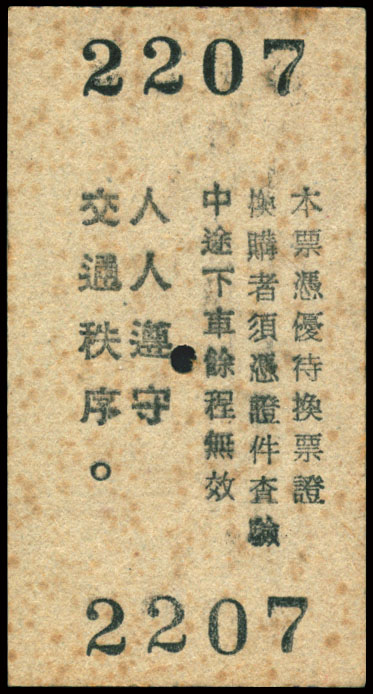 2207
本票憑優待換票證
換購者須憑證件查驗
中途下車餘程無效
人人遵守
交通秩序。
2207